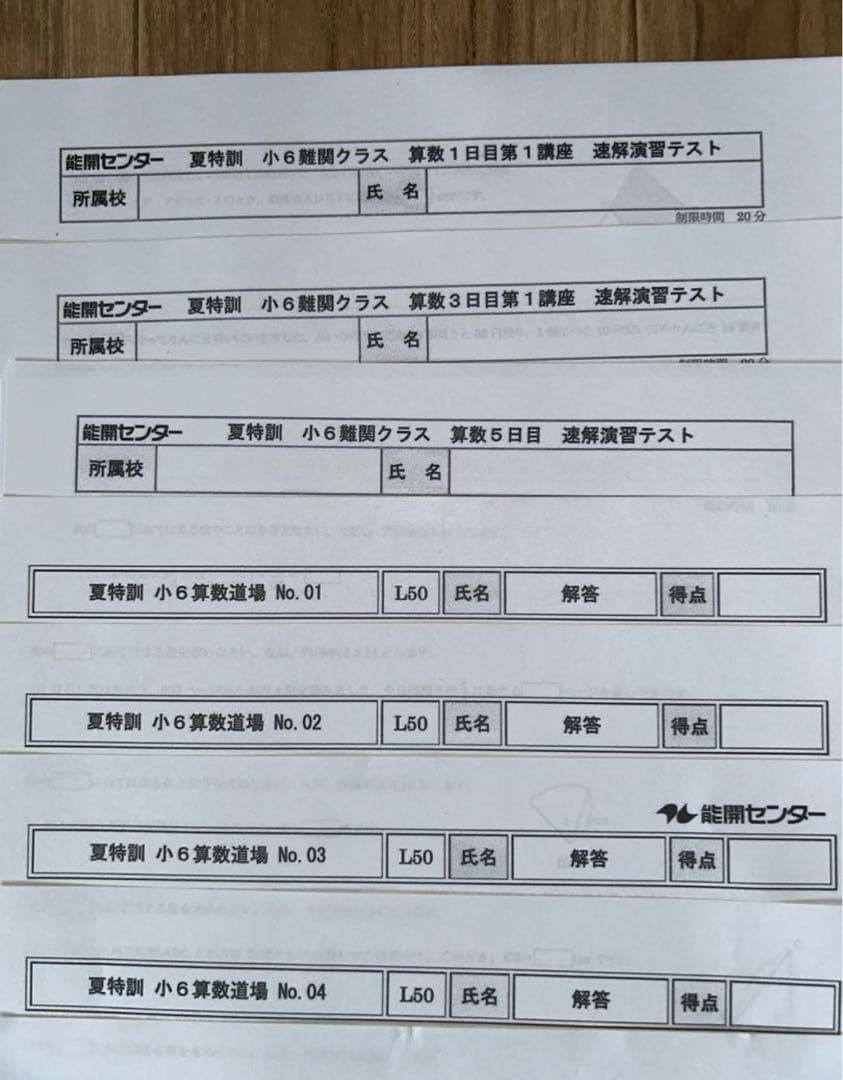 能開センター 夏特訓 小６難関クラス 算数１日目第１講座 速解演習テスト
所属校 氏 名
制限時間 20分
能開センター 夏特訓 小６難関クラス 算数３日目第１講座 速解演習テスト
所属校 氏 名
能開センター 夏特訓 小６難関クラス 算数５日目 速解演習テスト
所属校 氏 名
夏特訓 小６算数道場 No.01 L50 氏名 解答 得点
夏特訓 小６算数道場 No.02 L50 氏名 解答 得点
能開センター
夏特訓 小６算数道場 No.03 L50 氏名 解答 得点
夏特訓 小６算数道場 No.04 L50 氏名 解答 得点